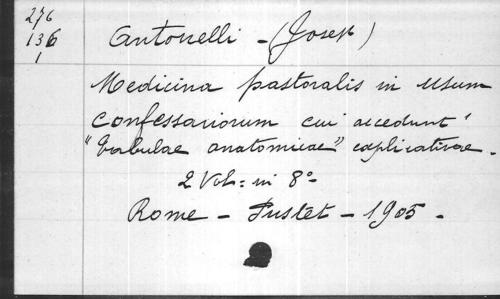 276
136
1
Antonelli - (Joseph)
Medicina pastoralis in usum
confessariorum cui accedunt
"Tabulae anatomicae" explicativae.
2 Vol: in 8°-
Rome - Pustet - 1905 -